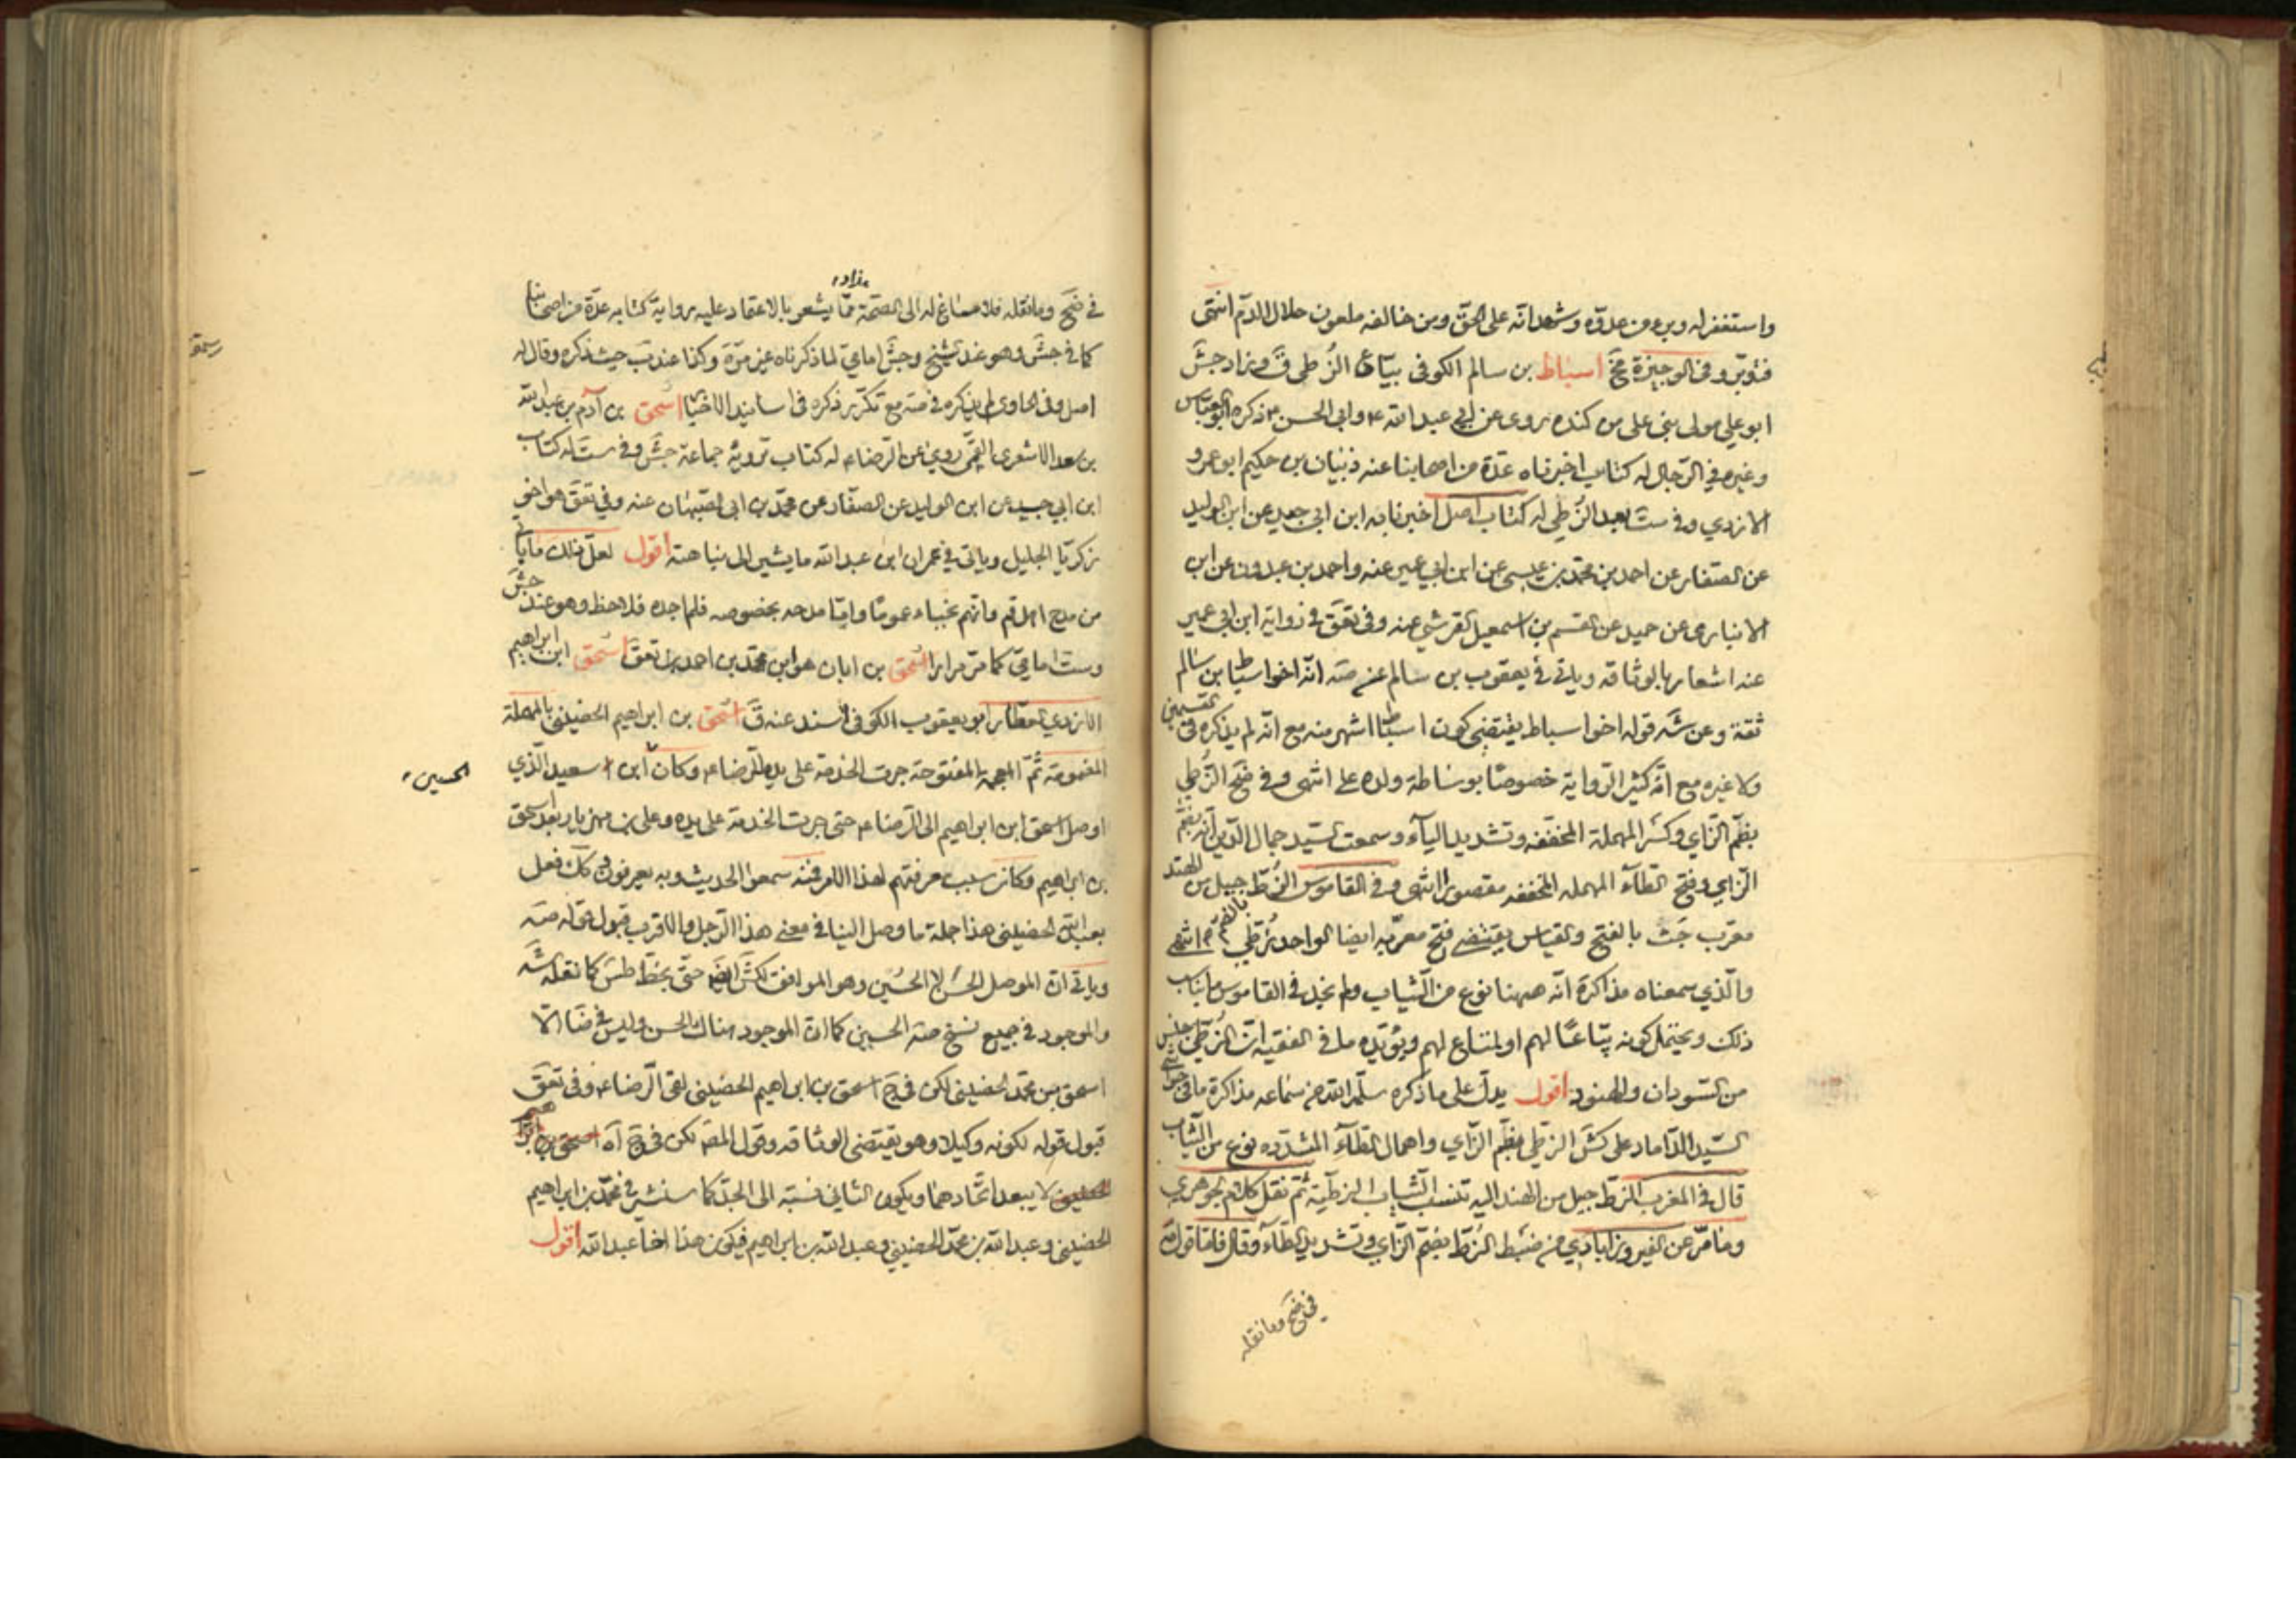 واستغفر له وبره من عدوه وشهد انه على الحق ومن خالفه ملعون حلال الدم انتهى
فتدبر وفى الوجيزة مخ اسباط بن سالم الكوفى بياع الزطى ق وزاد جش
ابو على مولى بنى على من كنده روى عن ابى عبد الله ع وابى الحسن ع ذكره ابو العباس
وغيره في الرجال له كتاب اخبرناه عدة من اصحابنا عنه ذبيان بن حكيم ابو عمرو
الازدي وفي ست بعد الزطي له كتاب اصل اخبرنا به ابن ابي جيد عن ابن الوليد
عن الصفار عن احمد بن محمد بن عيسى عن ابن ابي عمير عنه واحمد بن عبدون عن ابن
الانباري عن حميد عن القسم بن اسمعيل القرشي عنه وفى تعق في رواية ابن ابي عمير
عنه اشعار بالوثاقة وياتي في يعقوب بن سالم عن صه انه اخو اسباط بن سالم
ثقة وعن شه قوله اخو اسباط يقتضى كون اسباط اشهر منه مع انه لم يذكره فى القسمين
ولا غيره مع انه كثير الرواية خصوصا بوساطة ولده على انتهى وفي ضح الزطي
بضم الزاي وكسر المهملة المخففه وتشديد الياء وسمعت السيد جمال الدين انه بضم
الزاي وفتح الطاء المهمله المخففه مقصورا انتهى وفى القاموس الزط جيل من الهند
معرب جت بالفتح والقياس يقتضي فتح معربه ايضا الواحد زطي انتهى
والذي سمعناه مذاكرة انه ههنا نوع من الثياب ولم نجد في القاموس ما يناسب
ذلك ويحتمل كونه بياعا لهم او لمتاع لهم ويؤيده ما في الفقيه ان الزطي جنس
من السودان والهنود اقول يدل على ما ذكره سلمه الله من سماعه مذاكرة ما فى حواشي
السيد الداماد على كش الزطي بضم الزاي واهمال الطاء المشدده نوع من الثياب
قال في المغرب الزط جيل من الهند اليه تنسب الثياب الزطية ثم نقل كلام الجوهري
وما مر عن الفيروزابادي من ضبط الزط بضم الزاي وتشديد الطاء وقال فاما قوله
في ضح وما نقله
في ضح وما نقله فلا مساغ له الى الصحة مما يشعر بالاعتماد عليه رواية كتابه عدة من اصحابنا
كما في جش وهو عند شيخ وجش امامي لما ذكرناه غير مرة وكذا عند ب حيث ذكره وقال له
اصل وفى الحاوى لم يذكره في صه مع تكرر ذكره فى اسانيد الاخبار اسحق بن آدم بن عبد الله
بن سعد الاشعرى القمى روي عن الرضا ع له كتاب ترويه جماعة جش وفي ست له كتاب
ابن ابي جيد عن ابن الوليد عن الصفار عن محمد بن ابى الصهبان عنه وفي تعق هو اخو
زكريا الجليل وياتى في عمران ابن عبد الله ما يشير الى نباهته اقول لعل ذلك ما ياتي
من مدح اهل قم وانهم نجباء عموما واما مدحه بخصوصه فلم اجده فلاحظ وهو عند جش
وست امامي كما مر مرارا اسحق بن ابان هو ابن محمد بن احمد بن تعق اسحق ابن ابراهيم
الازدي العطار ابو يعقوب الكوفى اسند عنه ق اسحق بن ابراهيم الحضينى بالمهملة
المضمومة ثم المعجمة المفتوحة جرت الخدمة على يده للرضا ع وكان ابن سعيد الذي
الحسين
اوصل اسحق ابن ابراهيم الى الرضا ع حتى جرت الخدمة على يده وعلى بن مهزيار بعد اسحق
بن ابراهيم وكان سبب معرفتهم لهذا الامر فمنه سمعوا الحديث وبه يعرفون وكك فعل
بعبد الله الحضينى هذا جملة ما وصل الينا في معنى هذا الرجل والاقرب قبول قوله صه
وياتي ان الموصل الحسن لا الحسين وهو الموافق لكش ايضا حتى بخط طس كما نقله شه
والموجود في جميع نسخ صه الحسين كما ان الموجود هناك الحسن وليس في ضا الا
اسحق بن محمد الحضينى لكن في ج اسحق بن ابراهيم الحضينى لقى الرضا ع وفى تعق
قبول قوله لكونه وكيلا وهو يقتضى الوثاقه وقول المص لكن في ج آه
لا يبعد اتحادهما ويكون الثانى نسبته الى الجد كما سنشير في محمد بن ابراهيم
الحضينى وعبد الله بن محمد الحضينى وعبد الله بن ابراهيم فيكون هذا اخا عبد الله اقول